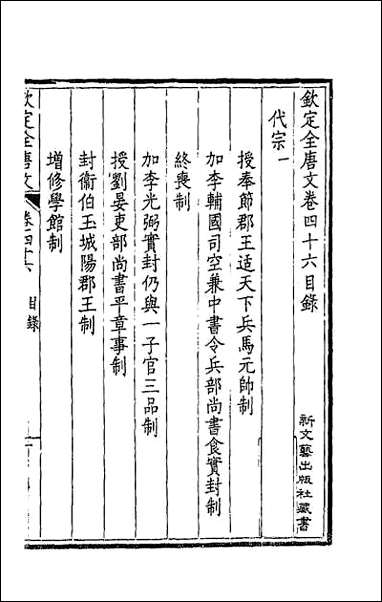 欽定全唐文卷四十六目錄
新文藝出版社藏書
代宗一
授奉節郡王适天下兵馬元帥制
加李輔國司空兼中書令兵部尚書食實封制
終喪制
加李光弼實封仍與一子官三品制
授劉晏吏部尚書平章事制
封衞伯玉城陽郡王制
增修學館制
欽定全唐文
卷四十六
目錄